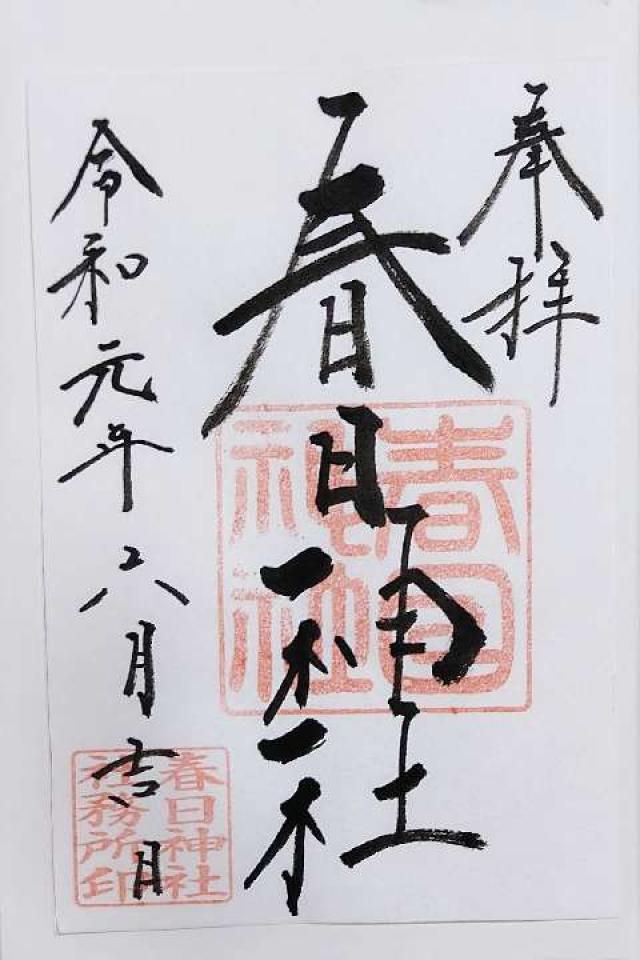 奉拝
春日神社
春日神社
令和元年六月吉日
春日神社
社務所印